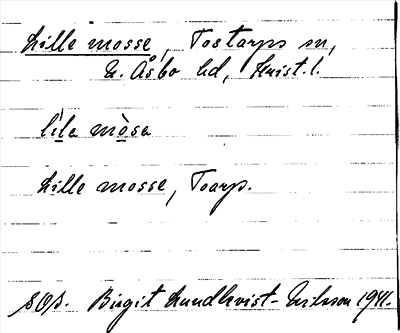 Lille mosse, Tostarps sn,
N. Åsbo hd, Krist. l.
lìla mòsa
Lille mosse, Toarp.
SOI. Birgit Lundkvist-Nilsson 1941.